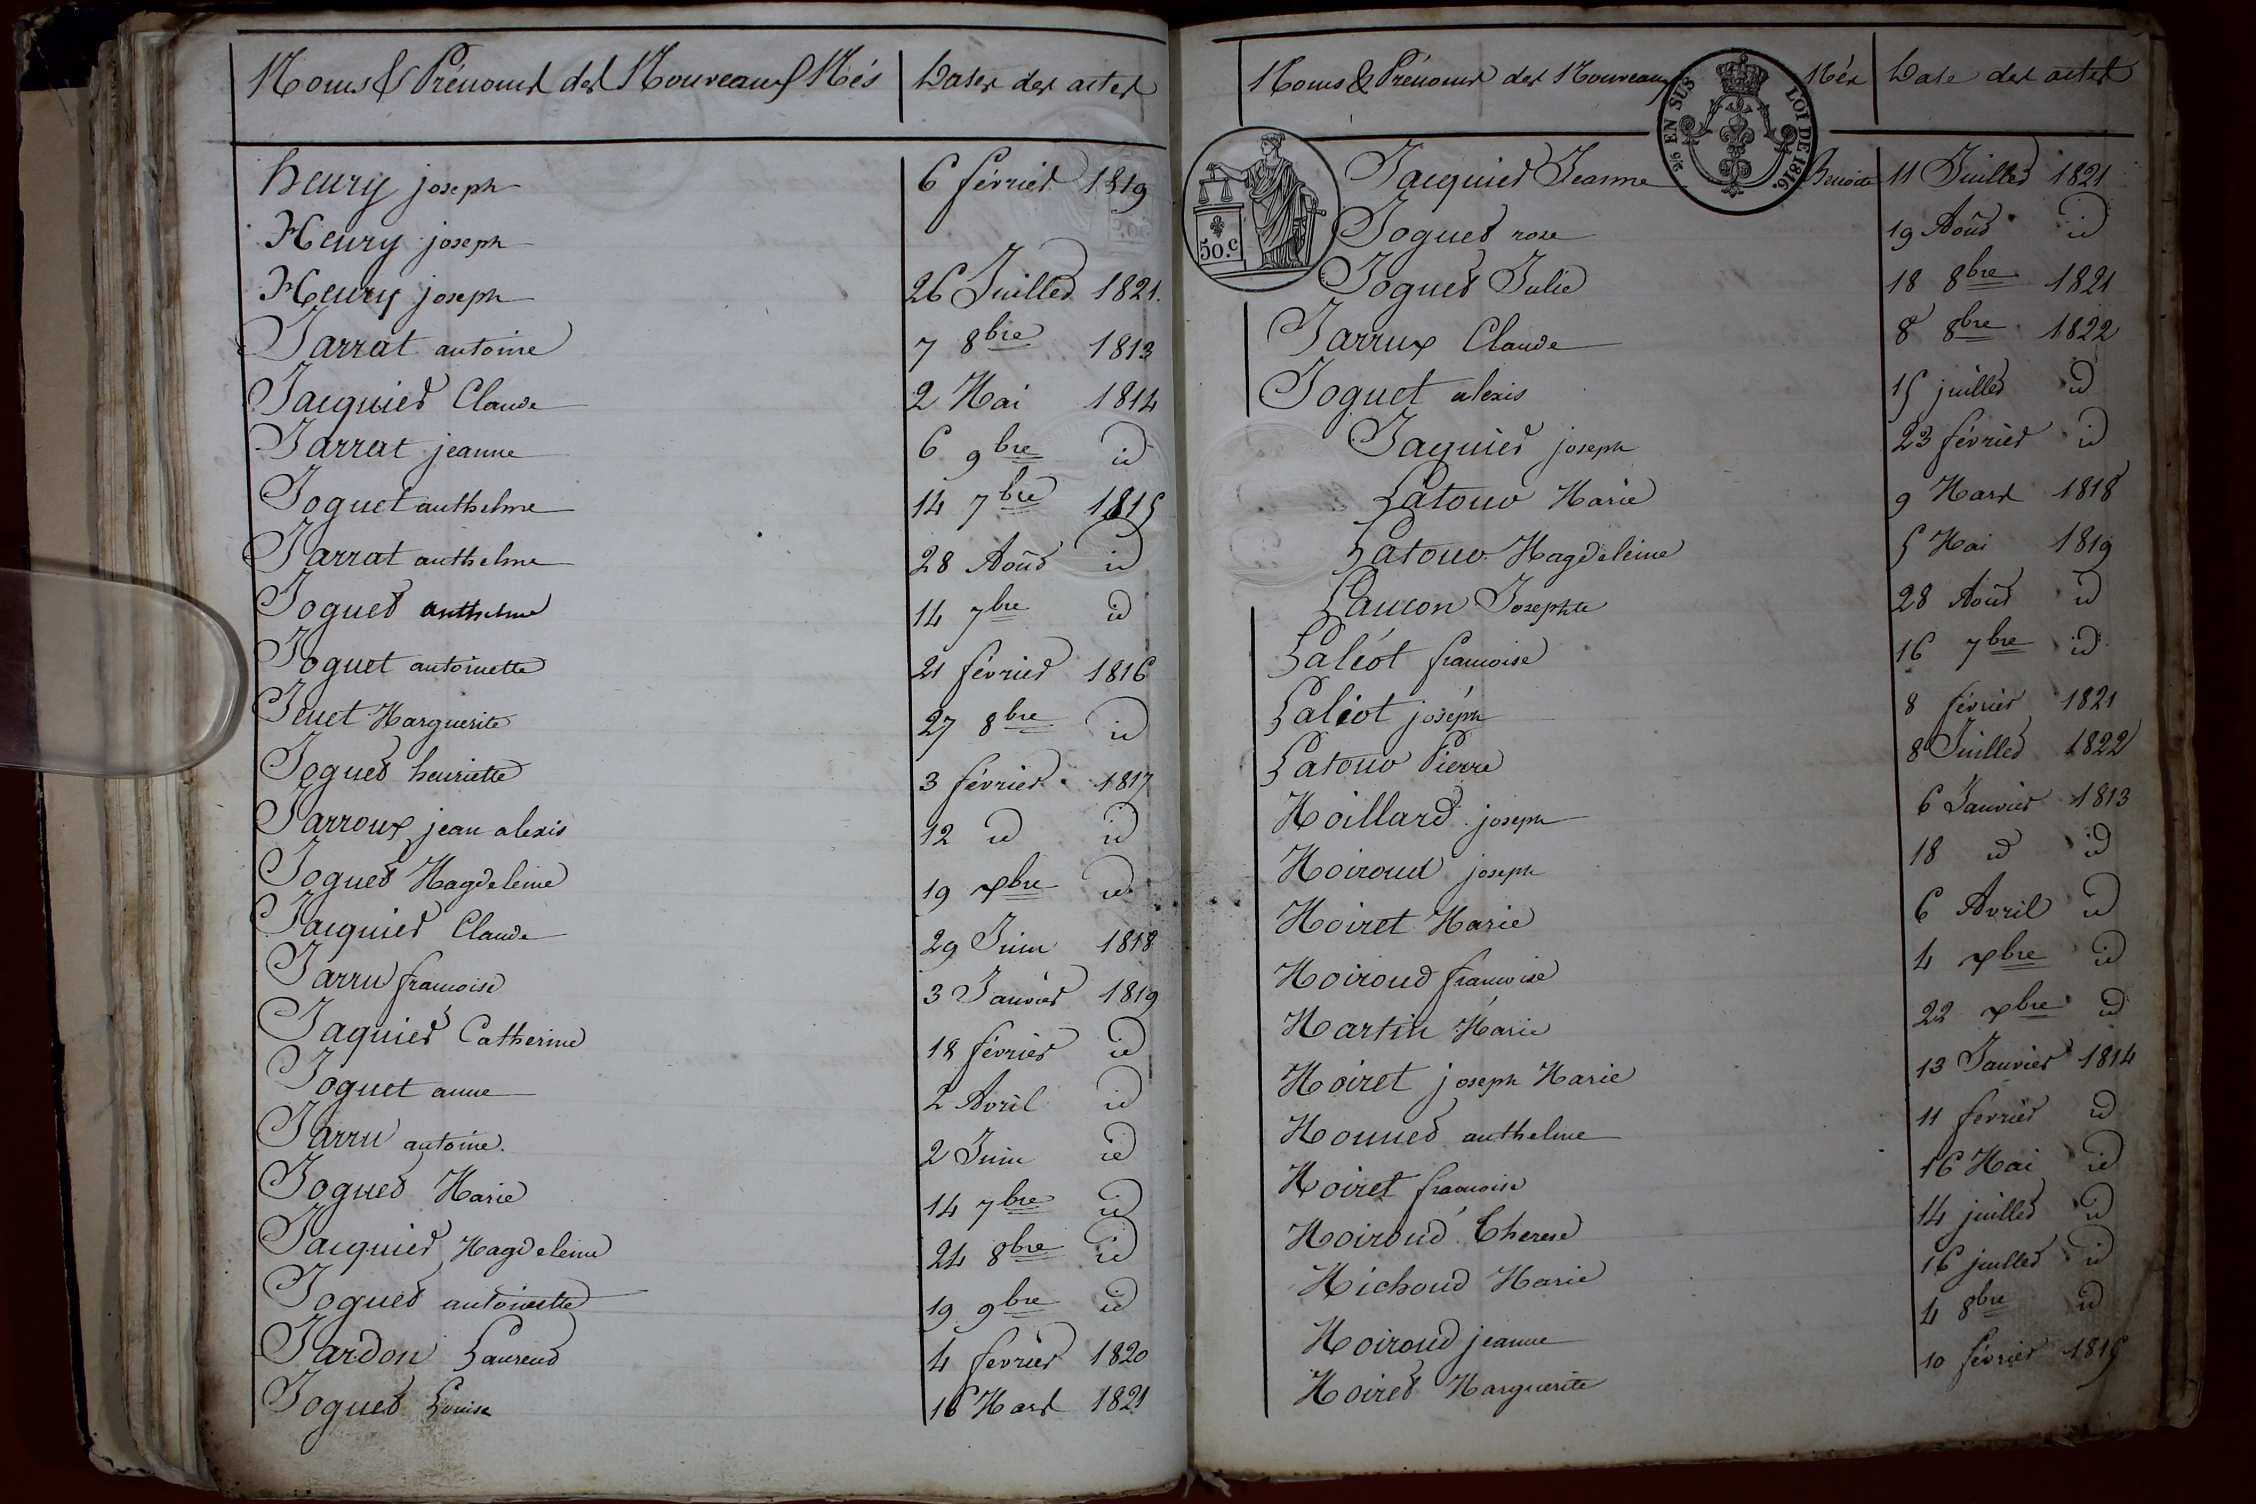 Noms & Prénoms des Nouveaux Nés Dates des actes
henry joseph 6 février 1819
Henry joseph
Henry joseph 26 Juillet 1821.
Jarrat antoine 7 8bre 1813
Jacquier Claude 2 Mai 1814
Jarrat jeanne 6 9bre id
Joguet anthelme 14 7bre 1815
Jarrat anthelme 28 Août id
Joguet anthelme 14 7bre id
Joguet antoinette 21 février 1816
Jenet Marguerite 27 8bre id
Joguet henriette 3 février 1817
Jarroux jean alexis 12 id id
Joguet Magdeleine 19 xbre id
Jacquier Claude 29 Juin 1818
Jarru francoise 3 Janvier 1819
Jaquier Catherine 18 février id
Joguet anne 2 Avril id
Jarru antoine. 2 Juin id
Joguet Marie 14 7bre id
Jacquier Magdeleine 24 8bre id
Joguet antoinette 19 9bre id
Jardon Laurent 4 fevrier 1820
Joguet Louise 16 Mars 1821
Noms & Prénoms des Nouveaux Nés Date des actes
EN SUS LOI DE 1816.
50.c
Jacquier Jeanne Benoite 11 Juillet 1821
Joguet rose 19 Août id
Joguet Julie 18 8bre 1821
Jarrux Claude 8 8bre 1822
Joguet alexis 15 juillet id
Jaquier joseph 23 février id
Latour Marie 9 Mars 1818
Latour Magdeleine 5 Mai 1819
Laucon Josephte 28 Août id
Laléot francoise 16 7bre id
Laléot joséph 8 février 1821
Latour Pierre 8 Juillet 1822
Moillard joseph 6 Janvier 1813
Moiroud joseph 18 id id
Moiret Marie 6 Avril id
Moiroud francoise 4 xbre id
Martin Marie 22 xbre id
Moiret joseph Marie 13 Janvier 1814
Monnet anthelme 11 fevrier id
Moiret francoise 16 Mai id
Moiroud Therese 14 juillet id
Michoud Marie 16 juillet id
Moiroud jeanne 4 8bre id
Moiret Marguerite 10 février 1815